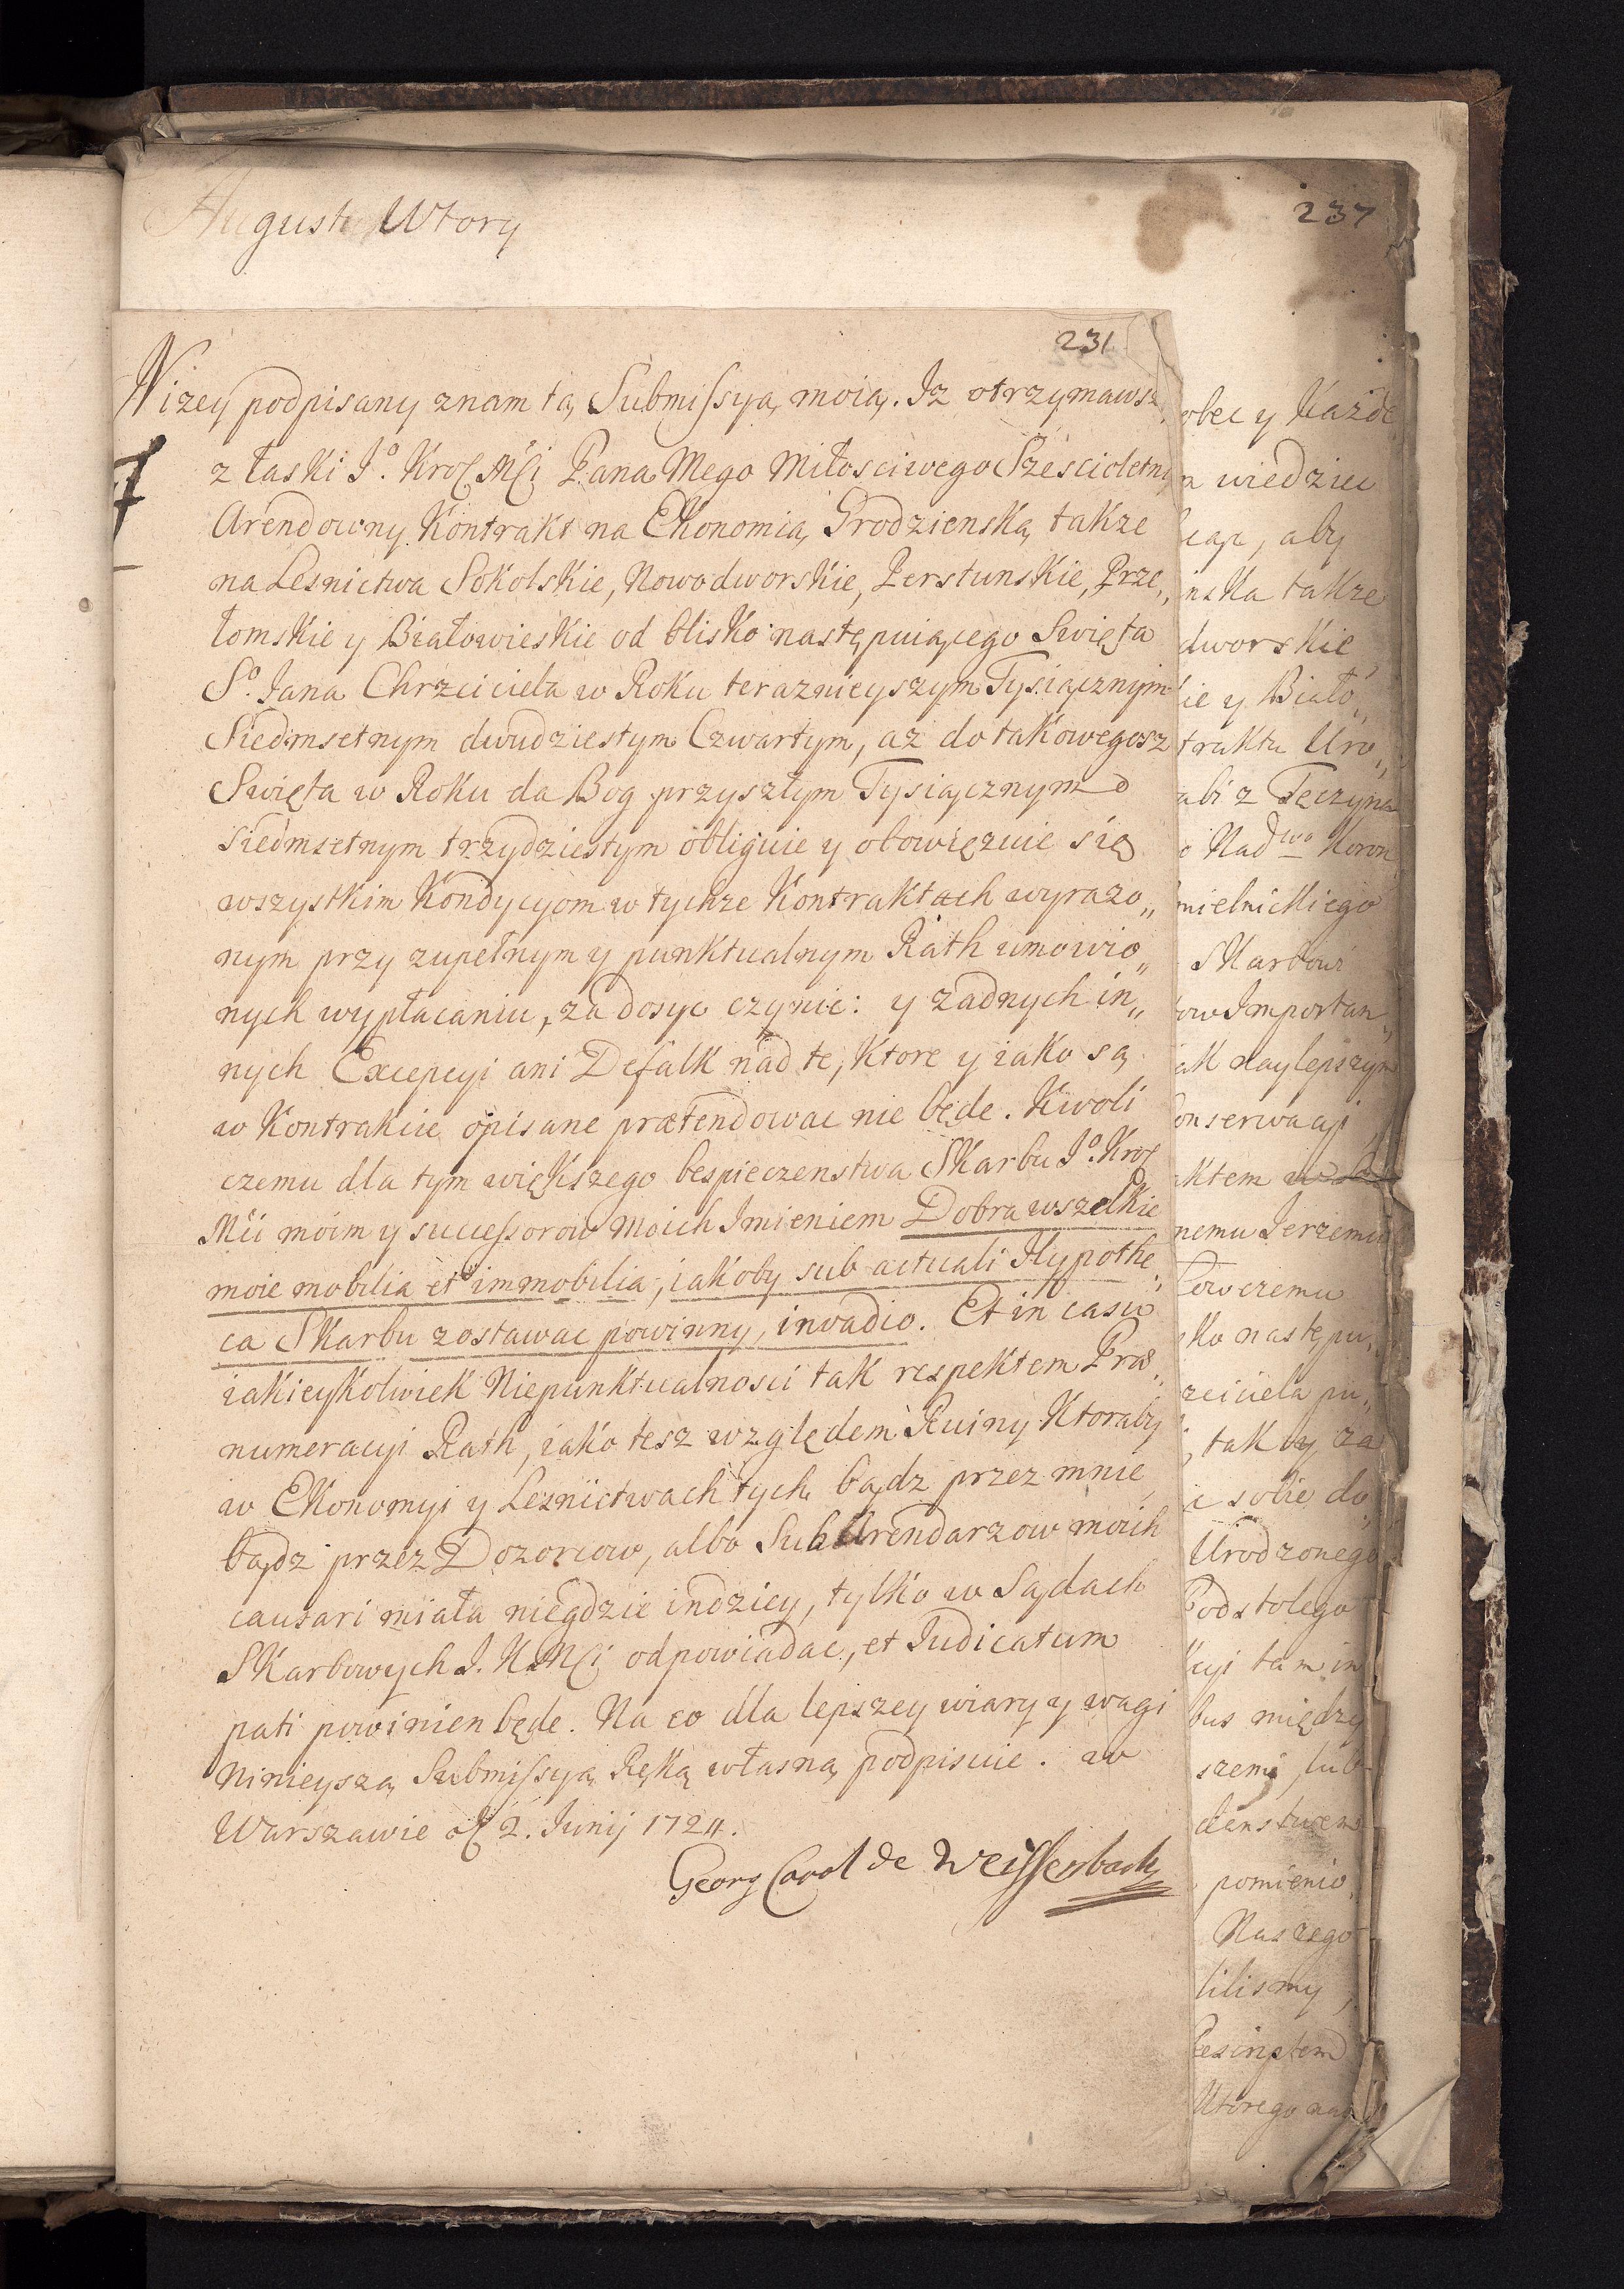 August Wtory
237
231
Nizey podpisany znam tą Submissyą moią. Iz otrzymawsz
z łaski Jº. Krol Mći Pana Mego Miłosciwego Szescioletni
Arendowny Kontrakt na Ekonomią Grodzienską takze
na Lesnictwa Sokolskie, Nowodworskie, Perstunskie, Prze„
łomskie y Białowieskie od blisko następuiącego Swięta
Sº. Jana Chrzciciela w Roku teraznieyszym Tysiącznym
Siedmsetnym dwudziestym Czwartym, az do takowegosz
Swięta w Roku da Bog przyszłym Tysiącznym
siedmsetnym trzydziestym obliguie y obowięzuie się
wszystkim Kondycyom w tychze Kontraktach wyrazo„
nym przy zupełnym y punktualnym Rath umowio„
nych wypłacaniu, za dosyc czynic: y zadnych in„
nych Excepcyi ani Defalk nad te, Ktore y iako są
w Kontrakcie opisane prætendowac nie będe. Kwoli
czemu dla tym większego bespieczenstwa Skarbu Jº. Krol
Mći moim y successorow moich Imieniem Dobra wszelkie
moie mobilia et immobilia, iakoby sub actuali Hypothe„
ca Skarbu zostawac powinny, in vadio. Et in casu
iakieykolwiek Niepunktualnosci tak respektem Præ„
numeracyi Rath, iako tesz względem Ruiny Ktoraby
w Ekonomyi y Lesnictwach tych bądz przez mnie
bądz przez Dozorcow, albo SubArendarzow moich
causari miała niegdzie indziey, tylko w Sądach
Skarbowych J. K. Mći odpowiadac, et Judicatum
pati powinien będe. Na co dla lepszey wiary y wagi
Ninieyszą Submissyą Ręką własną podpisuie. w
Warszawie d 2. Junij 1724.
Georg Carol de Weissenbach
obec y Kazde
wiedziec
aby
nska takze
dworskie
ie y Biało„
traktu Uro„
abi z Tęczyna
Nadwo Koron
mielnickiego
Skarbowi
ow Importan„
ak naylepszym
onserwacyi
ktem
nemu Jerzemu
Łowczemu
sko następu„
rzciciela
tak y za
sobie do„
Urodzonego
Podstolego
cyi tam in
bus między
szemi, lub
denstwem
pomienio„
Naszego
lilismy,
Rescriptem
Ktorego